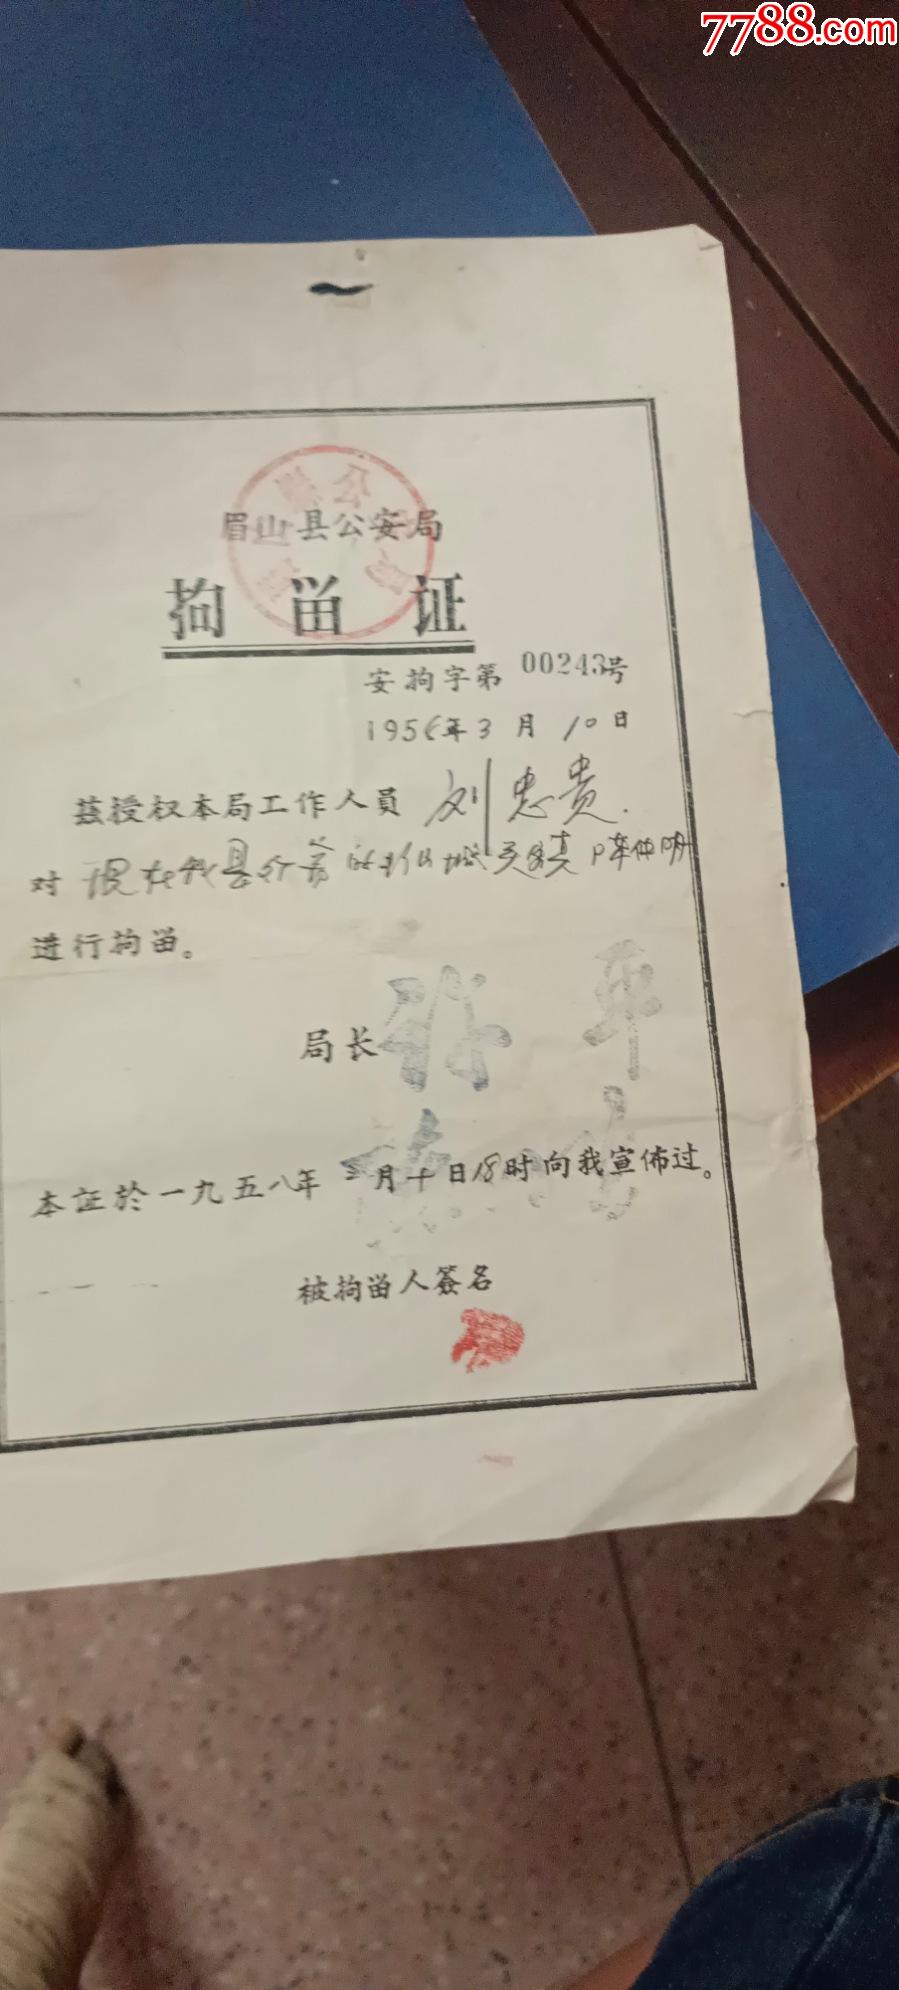 7788.com
眉山县公安局
拘畄证
安拘字第00243号
195 年3月10日
兹授权本局工作人员刘忠贵.
对现在我县 的 陈仲明
进行拘畄。
局长
本证於一九五八年 月十日18时向我宣佈过。
被拘畄人簽名